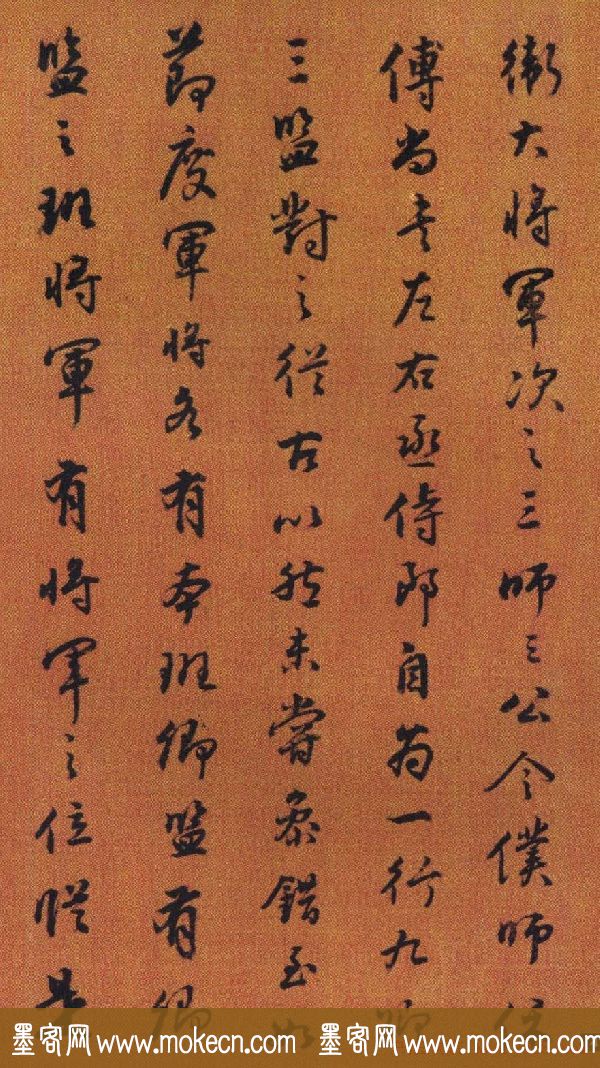 衛大將軍次之三師三公令僕師保
傅尚書左右丞侍郎自為一行九卿
三監對之從古以然未嘗參錯至如
節度軍將各有本班卿監有卿
監之班將軍有將軍之位縱是
墨客网 www.mokecn.com 墨客网 www.mokecn.com